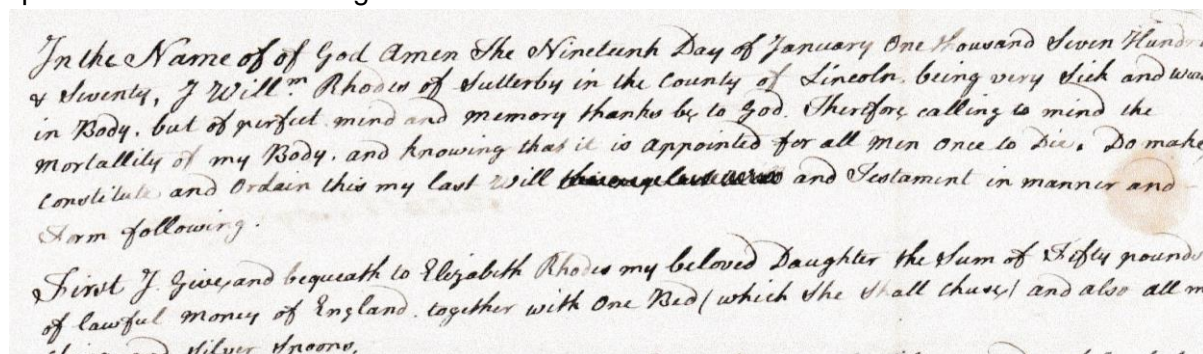 In the Name of of God Amen The Nineteenh Day of January One thousand Seven Hundr
& Seventy, I Will.m Rhodes of Sutterby in the County of Lincoln. being very Sick and
in Body. but of perfect mind and memory thanks be to God. Therefore calling to mind the
Mortallity of my Body. and knowing that it is appointed for all Men once to Die. Do make
Constitute and Ordain this my last Will and Testament in manner and
Form following.
First I. Give, and bequeath to Elizabeth Rhodes my beloved Daughter the Sum of Fifty pounds
of lawful Money of England. together with One Bed (which She Shall chuse) and also all m
and Silver Spoons.